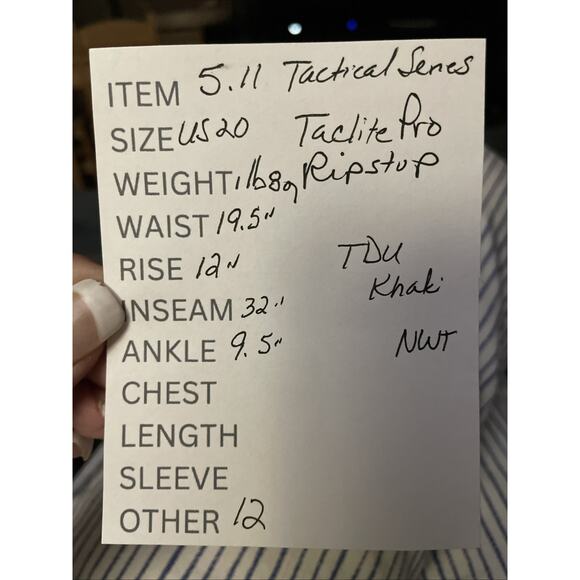 ITEM 5.11 Tactical Series
SIZE US 20 Taclite Pro
WEIGHT 1lb8oz Ripstop
WAIST 19.5"
RISE 12" TDU
Khaki
INSEAM 32"
ANKLE 9.5" NWT
CHEST
LENGTH
SLEEVE
OTHER 12